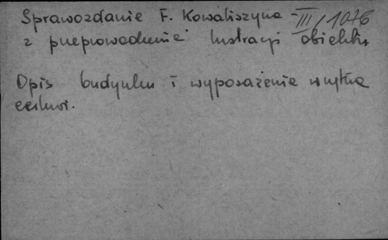 Sprawozdanie F. Kowaliszyna III/1026
z przeprowadzenia lustracji obiektu
Opis budynku i wyposażenia wnętrza
cerkwi.